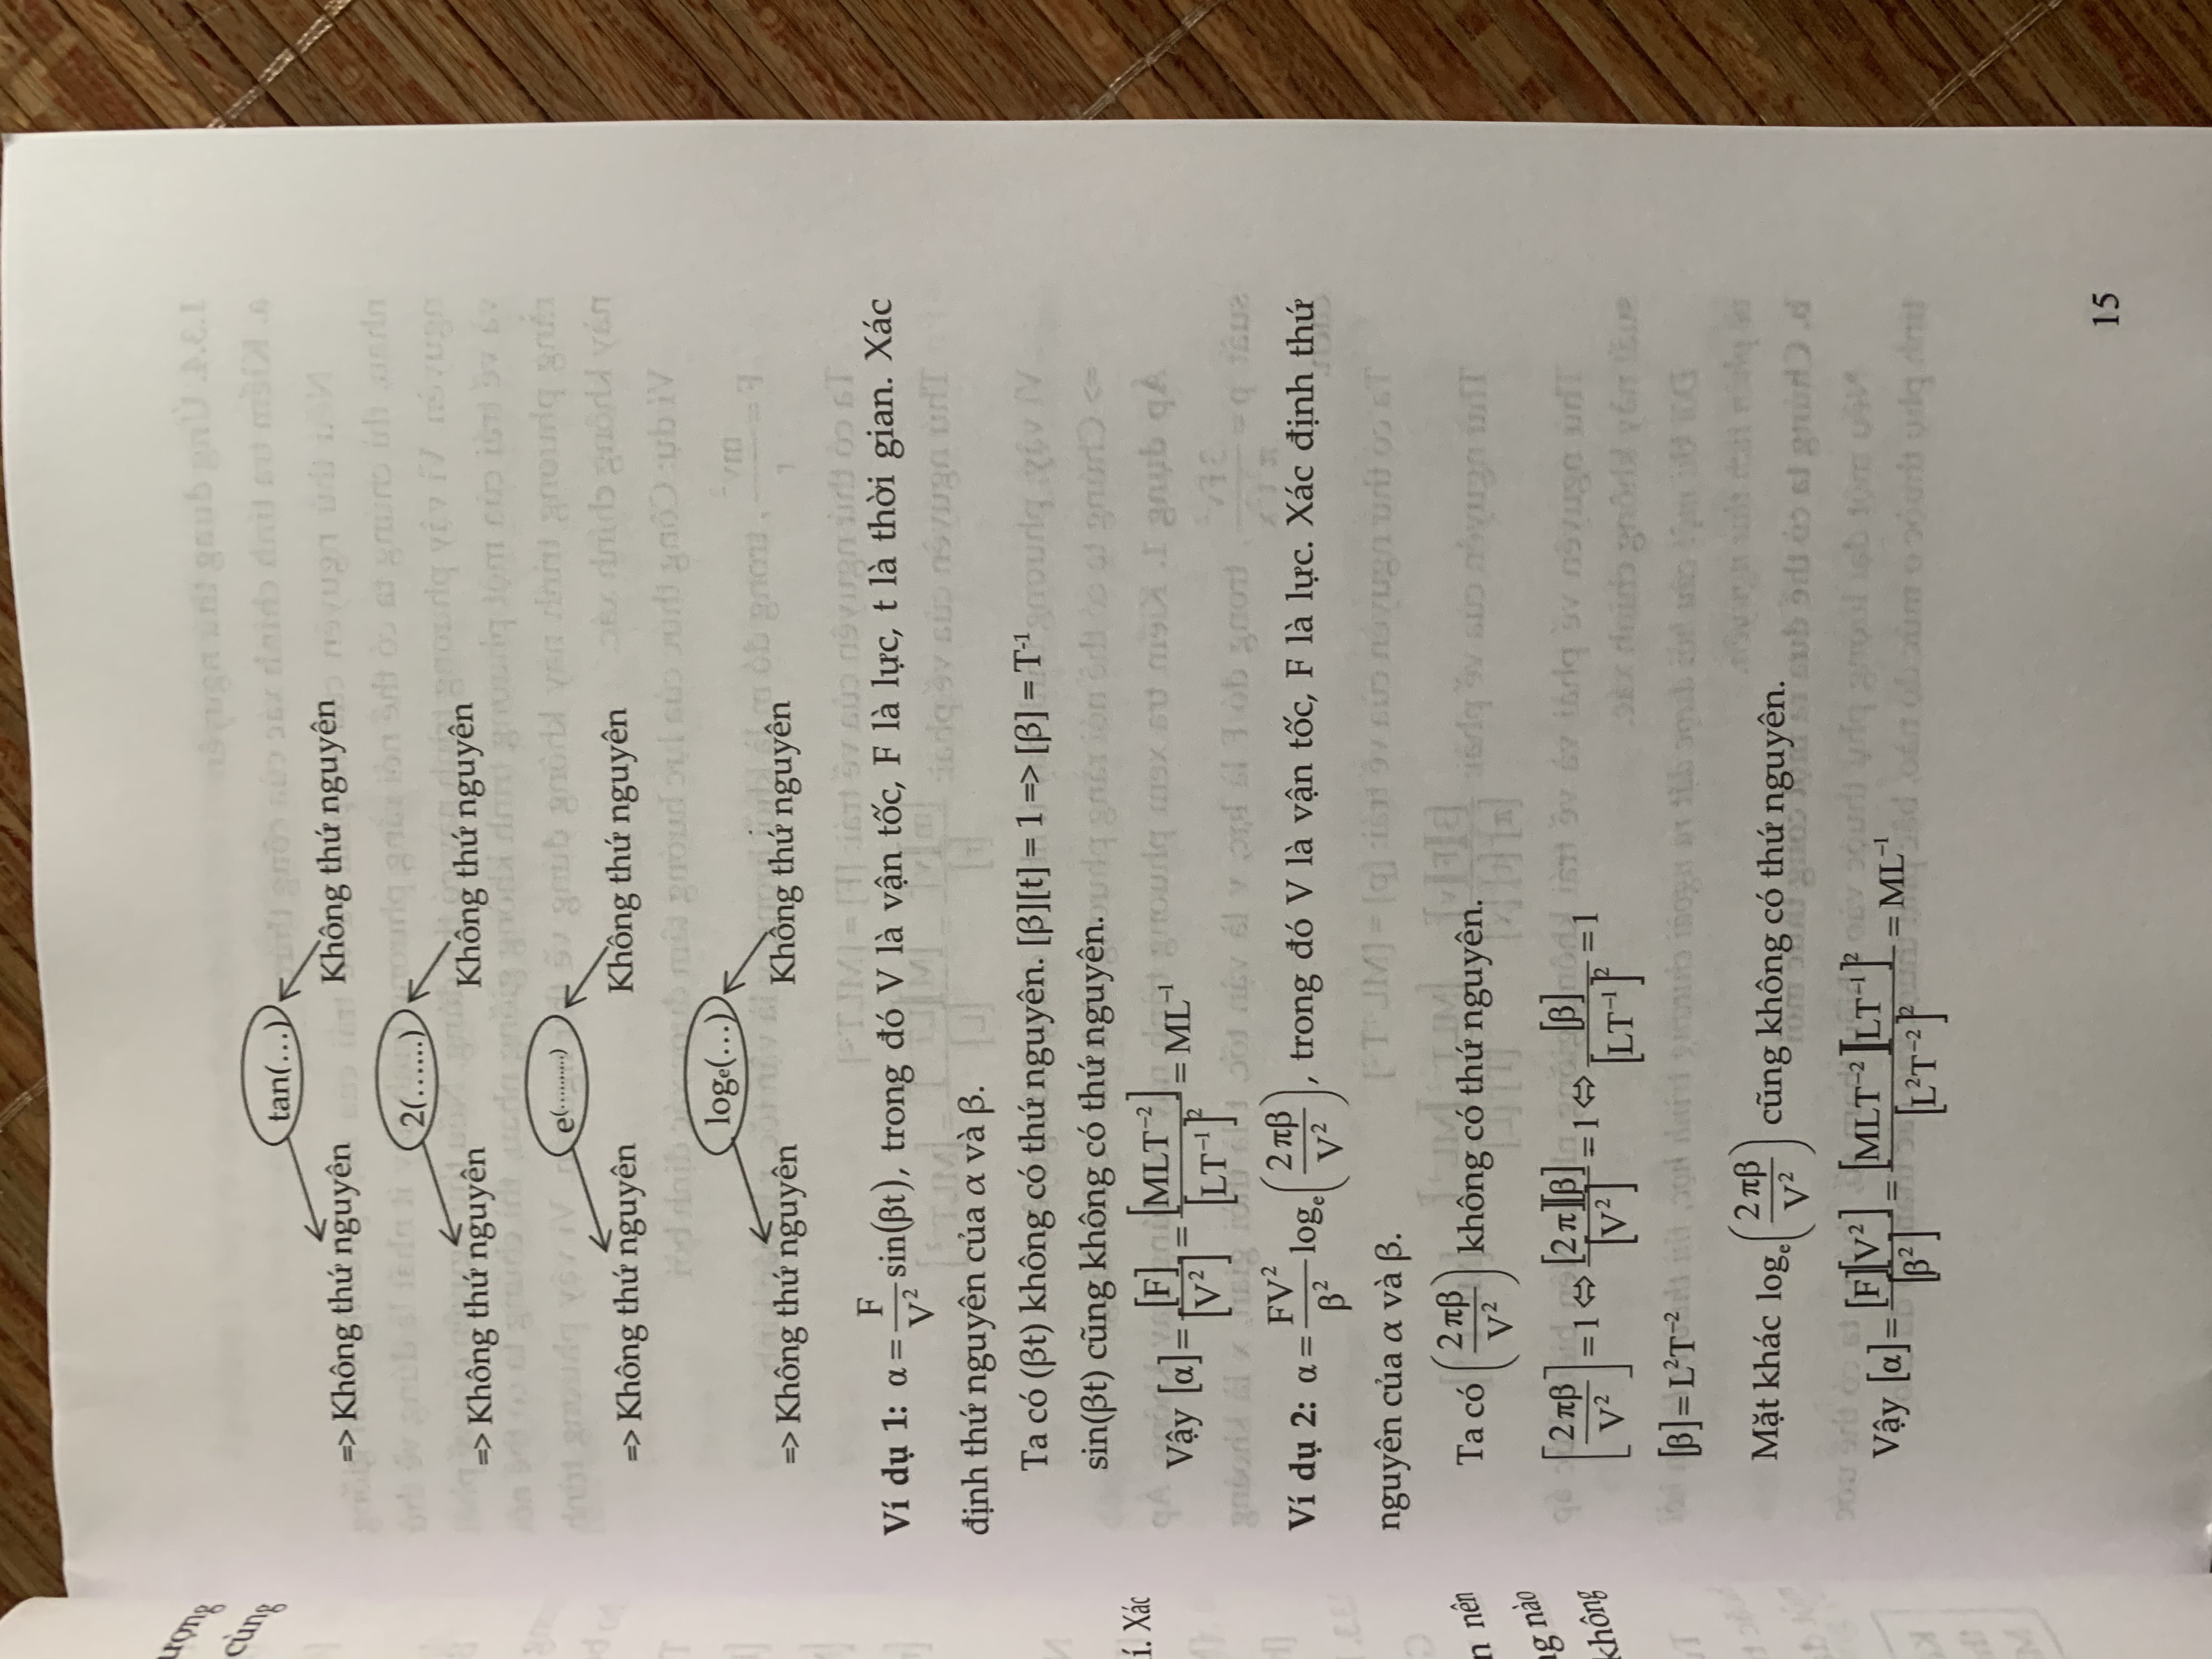 tan(...)
=> Không thứ nguyên Không thứ nguyên
2(......)
=> Không thứ nguyên Không thứ nguyên
e(..........)
=> Không thứ nguyên Không thứ nguyên
logₑ(...)
=> Không thứ nguyên Không thứ nguyên
Ví dụ 1: α = F/V² sin(βt), trong đó V là vận tốc, F là lực, t là thời gian. Xác
định thứ nguyên của α và β.
Ta có (βt) không có thứ nguyên. [β][t] = 1 => [β] = T⁻¹
sin(βt) cũng không có thứ nguyên.
Vậy [α] = [F]/[V²] = [MLT⁻²]/[LT⁻¹]² = ML⁻¹
Ví dụ 2: α = FV²/β² logₑ(2πβ/V²), trong đó V là vận tốc, F là lực. Xác định thứ
nguyên của α và β.
Ta có (2πβ/V²) không có thứ nguyên.
[2πβ/V²] = 1 ⇔ [2π][β]/[V²] = 1 ⇔ [β]/[LT⁻¹]² = 1
[β] = L²T⁻²
Mặt khác logₑ(2πβ/V²) cũng không có thứ nguyên.
Vậy [α] = [F][V²]/[β²] = [MLT⁻²][LT⁻¹]²/[L²T⁻²]² = ML⁻¹
15
cùng
í. Xác
nên
nào
không